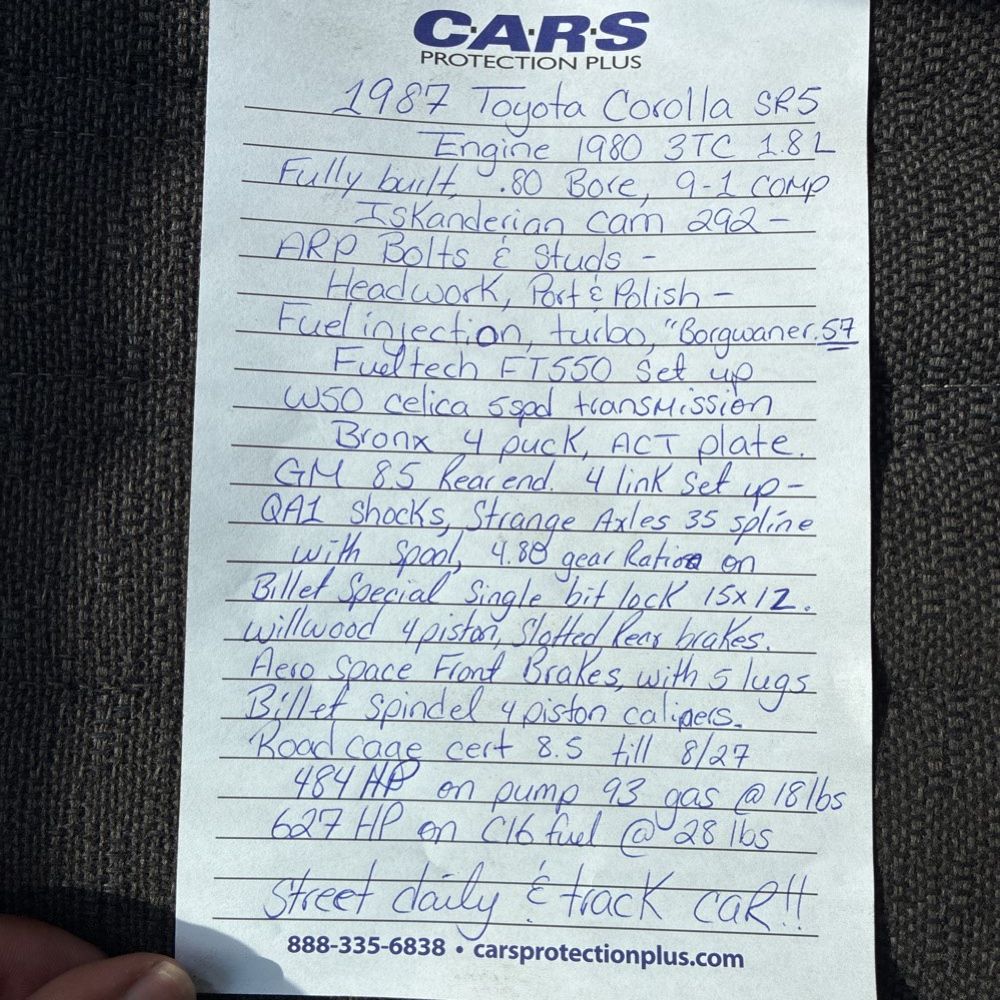 C·A·R·S
PROTECTION PLUS
1987 Toyota Corolla SR5
Engine 1980 3TC 1.8 L
Fully built, .80 Bore, 9-1 comp
Iskanderian cam 292 -
ARP Bolts & Studs -
Headwork, Port & Polish -
Fuel injection, turbo, "Borgwaner.57
Fueltech FT550 Set up
W50 celica 5spd transmission
Bronx 4 puck, ACT plate.
GM 8.5 Rear end. 4 link Set up -
QA1 Shocks, Strange Axles 35 spline
with spool, 4.88 gear Ratio on
Billet Special Single bit lock 15x12.
Willwood 4 piston, Slotted Rear brakes.
Aero Space Front Brakes, with 5 lugs
Billet spindel 4 piston calipers.
Road cage cert 8.5 till 8/27
484 HP on pump 93 gas @ 18 lbs
627 HP on C16 fuel @ 28 lbs
Street daily & track CAR!!
888-335-6838 • carsprotectionplus.com